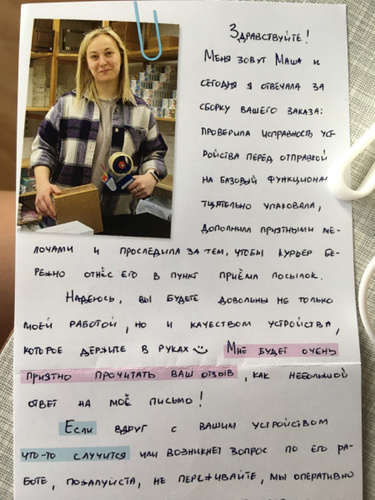 Здравствуйте!
Меня зовут Маша и
сегодня я отвечала за
сборку вашего заказа:
проверила исправность уст-
ройства перед отправкой
на базовый функционал
тщательно упаковала,
дополнила приятными ме-
лочами и проследила за тем, чтобы курьер бе-
режно отнёс его в пункт приёма посылок.
Надеюсь, вы будете довольны не только
моей работой, но и качеством устройства,
которое держите в руках Мне будет очень
приятно прочитать ваш отзыв, как небольшой
ответ на моё письмо!
Если вдруг с вашим устройством
что-то случится или возникнет вопрос по его ра-
боте, пожалуйста, не переживайте, мы оперативно